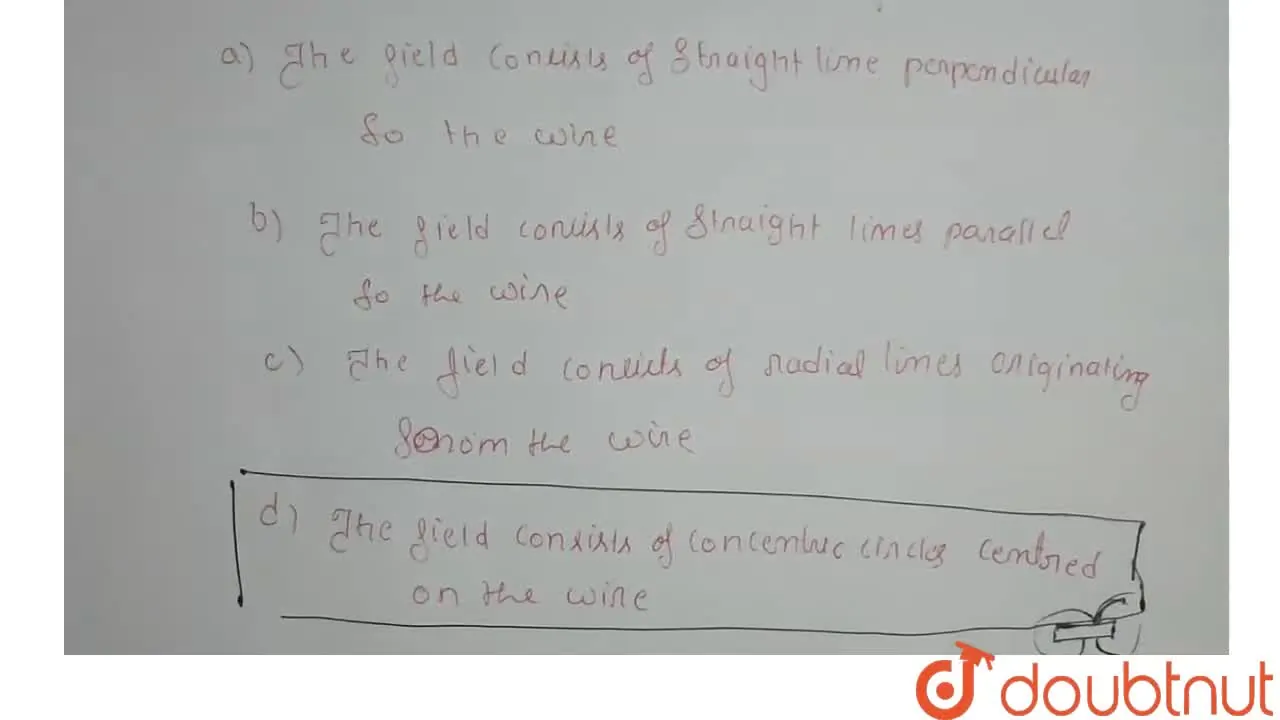 a) The field consists of straight line perpendicular
to the wire
b) The field consists of straight lines parallel
to the wire
c) The field consists of radial lines originating
from the wire
d) The field consists of concentric circles centred
on the wire
doubtnut